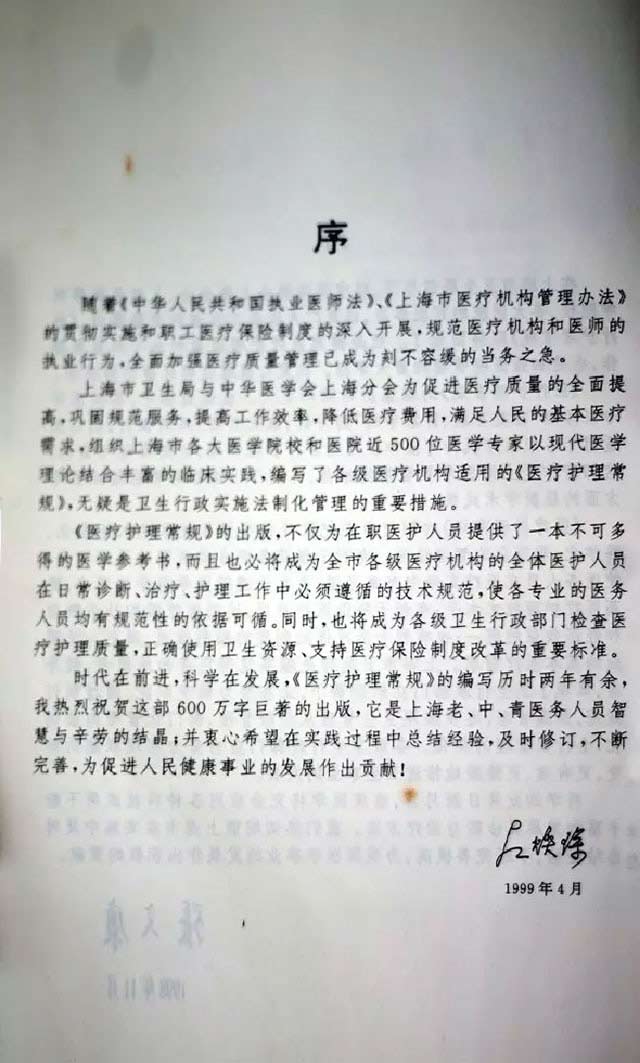 序
随着《中华人民共和国执业医师法》、《上海市医疗机构管理办法》
的贯彻实施和职工医疗保险制度的深入开展，规范医疗机构和医师的
执业行为，全面加强医疗质量管理已成为刻不容缓的当务之急。
上海市卫生局与中华医学会上海分会为促进医疗质量的全面提
高，巩固规范服务，提高工作效率，降低医疗费用，满足人民的基本医疗
需求，组织上海市各大医学院校和医院近500位医学专家以现代医学
理论结合丰富的临床实践，编写了各级医疗机构适用的《医疗护理常
规》，无疑是卫生行政实施法制化管理的重要措施。
《医疗护理常规》的出版，不仅为在职医护人员提供了一本不可多
得的医学参考书，而且也必将成为全市各级医疗机构的全体医护人员
在日常诊断、治疗、护理工作中必须遵循的技术规范，使各专业的医务
人员均有规范性的依据可循。同时，也将成为各级卫生行政部门检查医
疗护理质量，正确使用卫生资源、支持医疗保险制度改革的重要标准。
时代在前进，科学在发展，《医疗护理常规》的编写历时两年有余，
我热烈祝贺这部600万字巨著的出版，它是上海老、中、青医务人员智
慧与辛劳的结晶；并衷心希望在实践过程中总结经验，及时修订，不断
完善，为促进人民健康事业的发展作出贡献！
1999年4月
张文康
1998年11月